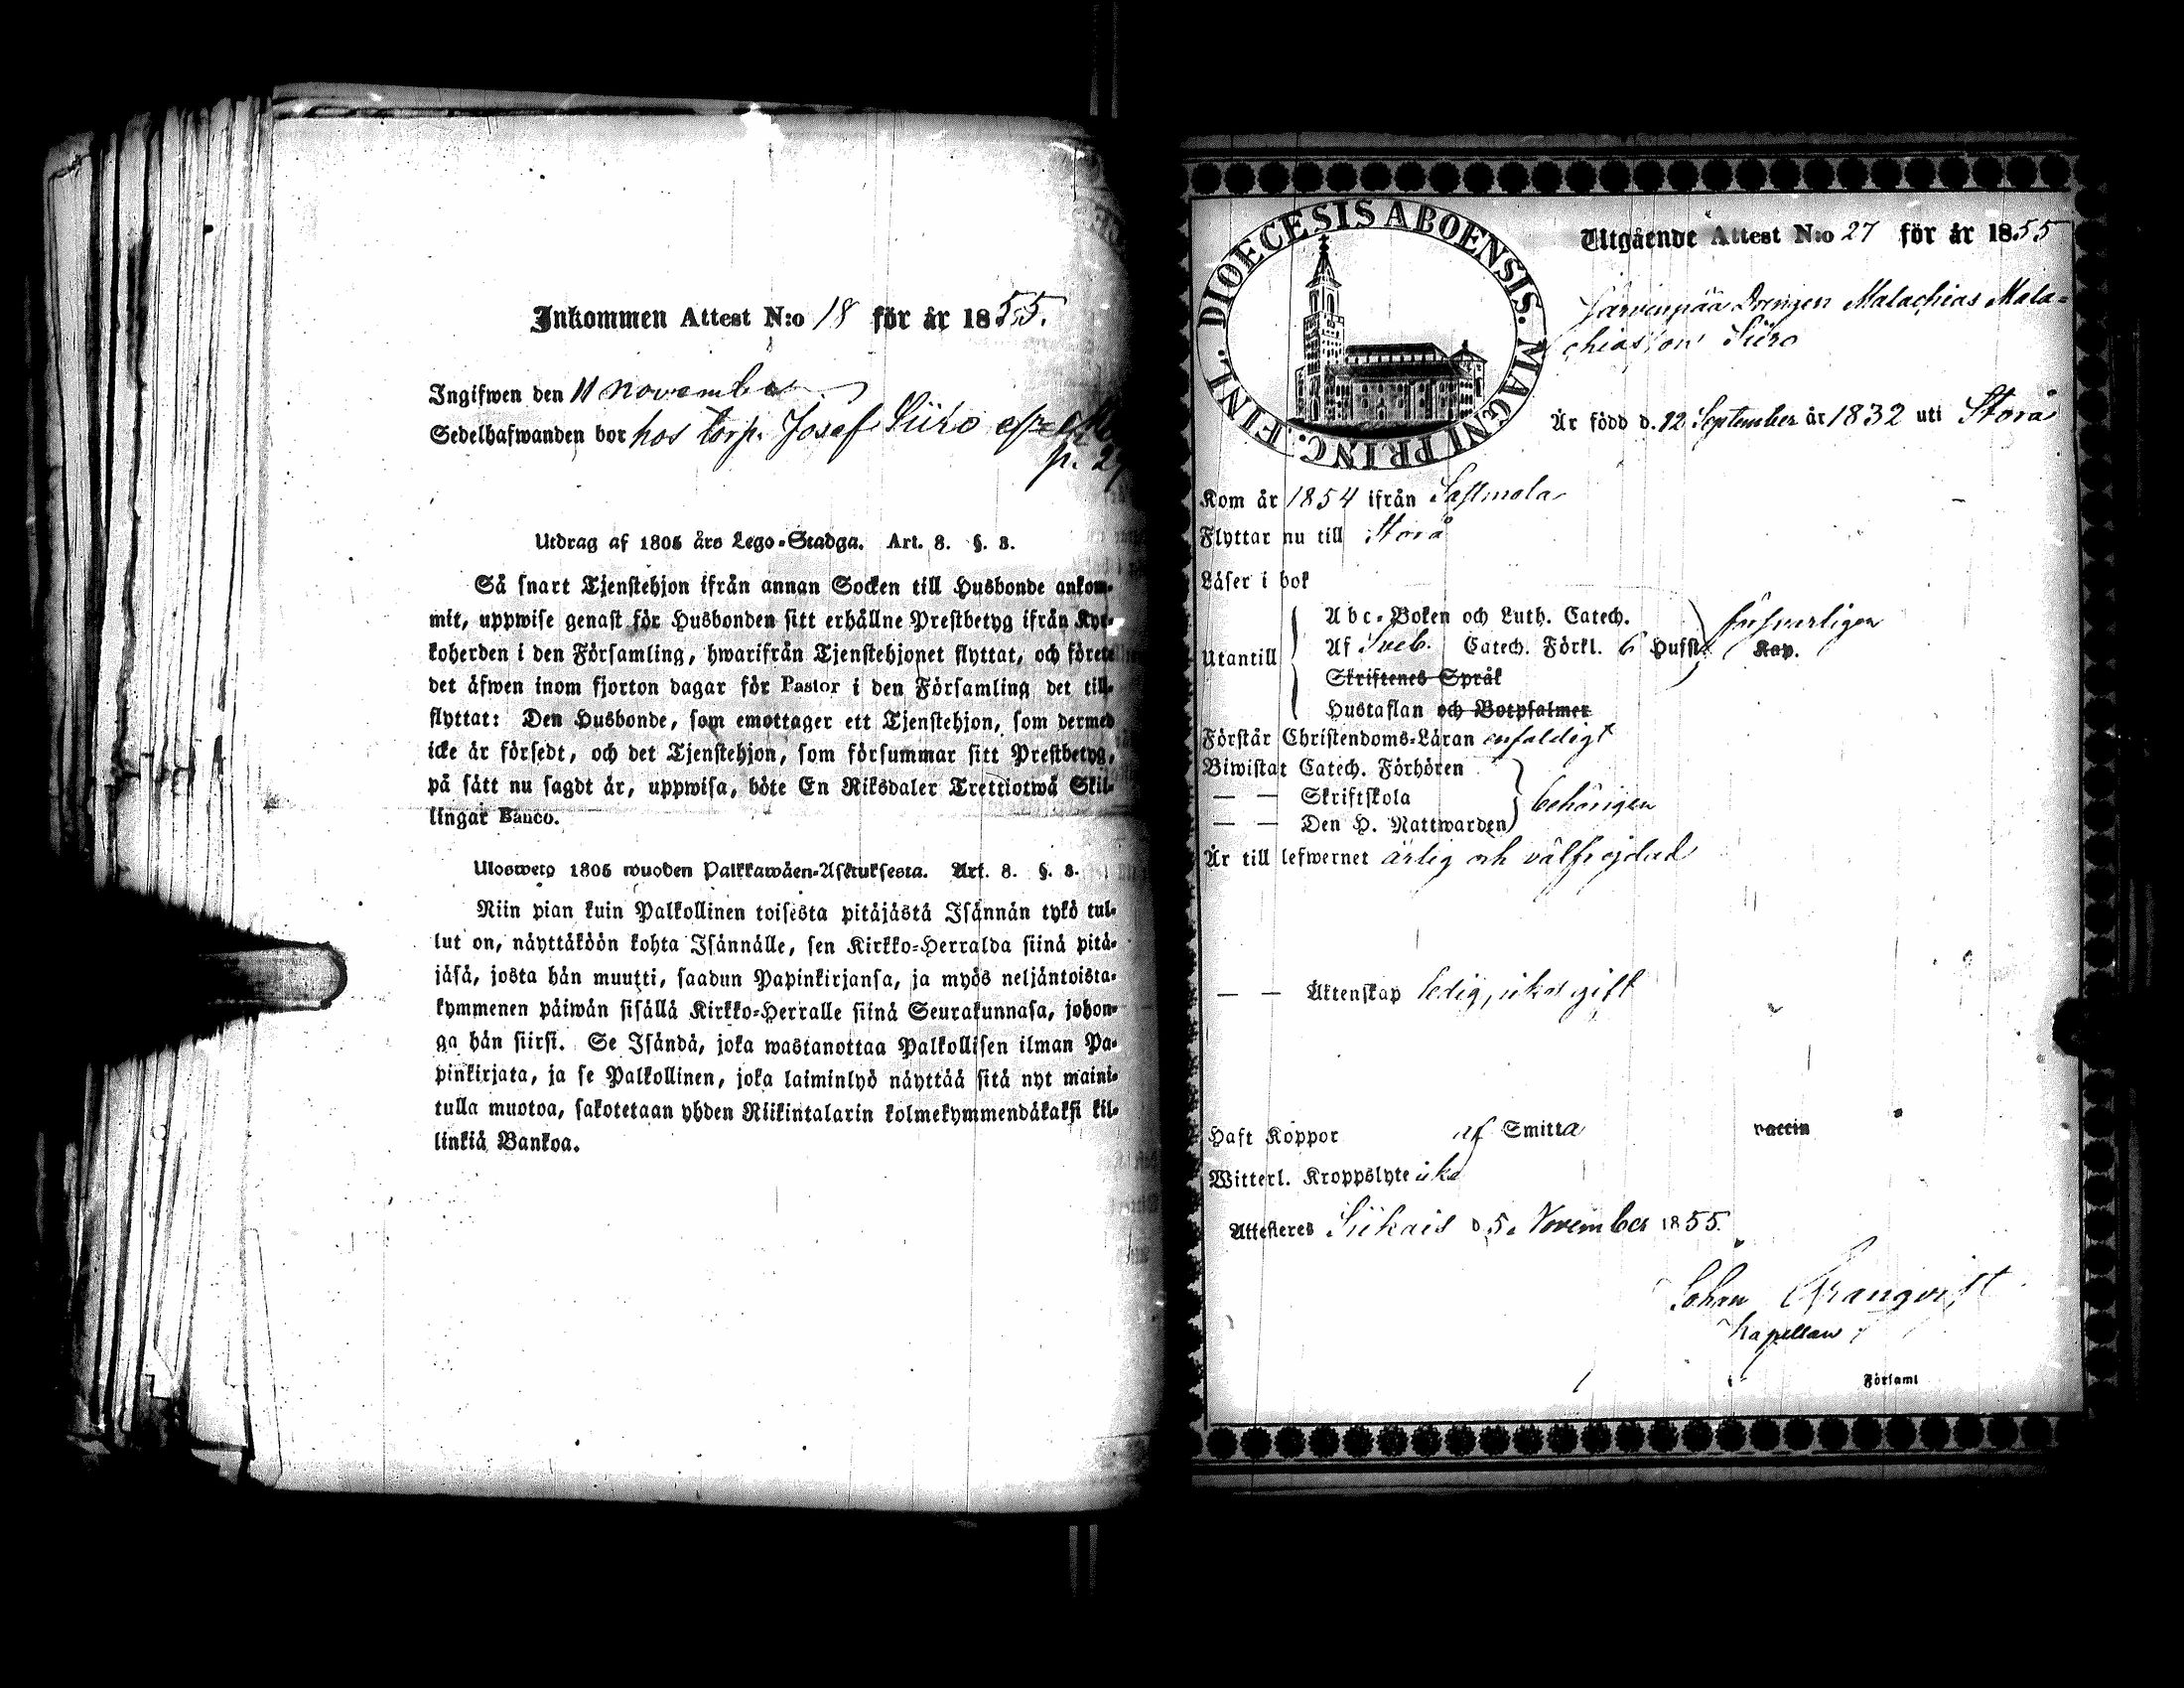 Inkommen Attest N:o 18 för år 1855.
Ingifwen den 11 november
Sedelhafwanden bor hos torp. Josef Siiro
p. 2
Utdrag af 1805 års Lego-Stadga. Art. 8. §. 8.
Så snart Tjenstehjon ifrån annan Socken till Husbonde ankom-
mit, uppwise genast för Husbonden sitt erhållne Prestbetyg ifrån Kyr-
koherden i den Församling, hwarifrån Tjenstehjonet flyttat, och förete
det äfwen inom fjorton dagar för Pastor i den Församling det till-
flyttat: Den Husbonde, som emottager ett Tjenstehjon, som dermed
icke är försedt, och det Tjenstehjon, som försummar sitt Prestbetyg,
på sätt nu sagdt är, uppwisa, böte En Riksdaler Trettiotwå Skil-
lingar Banco.
Ulosweto 1805 wuoden Palkkawäen-Asetuksesta. Art. 8. §. 8.
Niin pian kuin Palkollinen toisesta pitäjästä Isännän tykö tul-
lut on, näyttäköön kohta Isännälle, sen Kirkko-Herralda siinä pitä-
jäsä, josta hän muutti, saadun Papinkirjansa, ja myös neljäntoista-
kymmenen päiwän sisällä Kirkko-Herralle siinä Seurakunnasa, johon-
ga hän siirsi. Se Isändä, joka wastanottaa Palkollisen ilman Pa-
pinkirjata, ja se Palkollinen, joka laiminlyö näyttää sitä nyt maini-
tulla muotoa, sakotetaan yhden Riikintalarin kolmekymmendäkaksi kil-
linkiä Bankoa.
DIOECESIS ABOENSIS. MAGNI PRINC. FINL.
Utgående Attest N:o 27 för år 1855
Järvenpää Drengen Malachias Mala-
chiasson Siiro
Är född d. 12 September år 1832 uti Storå
Kom år 1854 ifrån Sastmola
Flyttar nu till Storå
Läser i bok
Abc-Boken och Luth. Catech. försvarligen
Utantill Af Sveb. Catech. Förkl. 6 Hufst. Kap.
Skriftenes Språk
Hustaflan och Botpsalmer
Förstår Christendoms-Läran enfaldigt
Biwistat Catech. Förhören
— — Skriftskola behörigen
— — Den H. Nattwarden
Är till lefwernet ärlig och välfrejdad
— — Äktenskap ledig, icke gift
Haft Koppor af Smitta vaccin
Witterl. Kroppslyte icke
Attesteres Siikais d. 5 November 1855.
Johan Granqvist
Kapellan
Församl